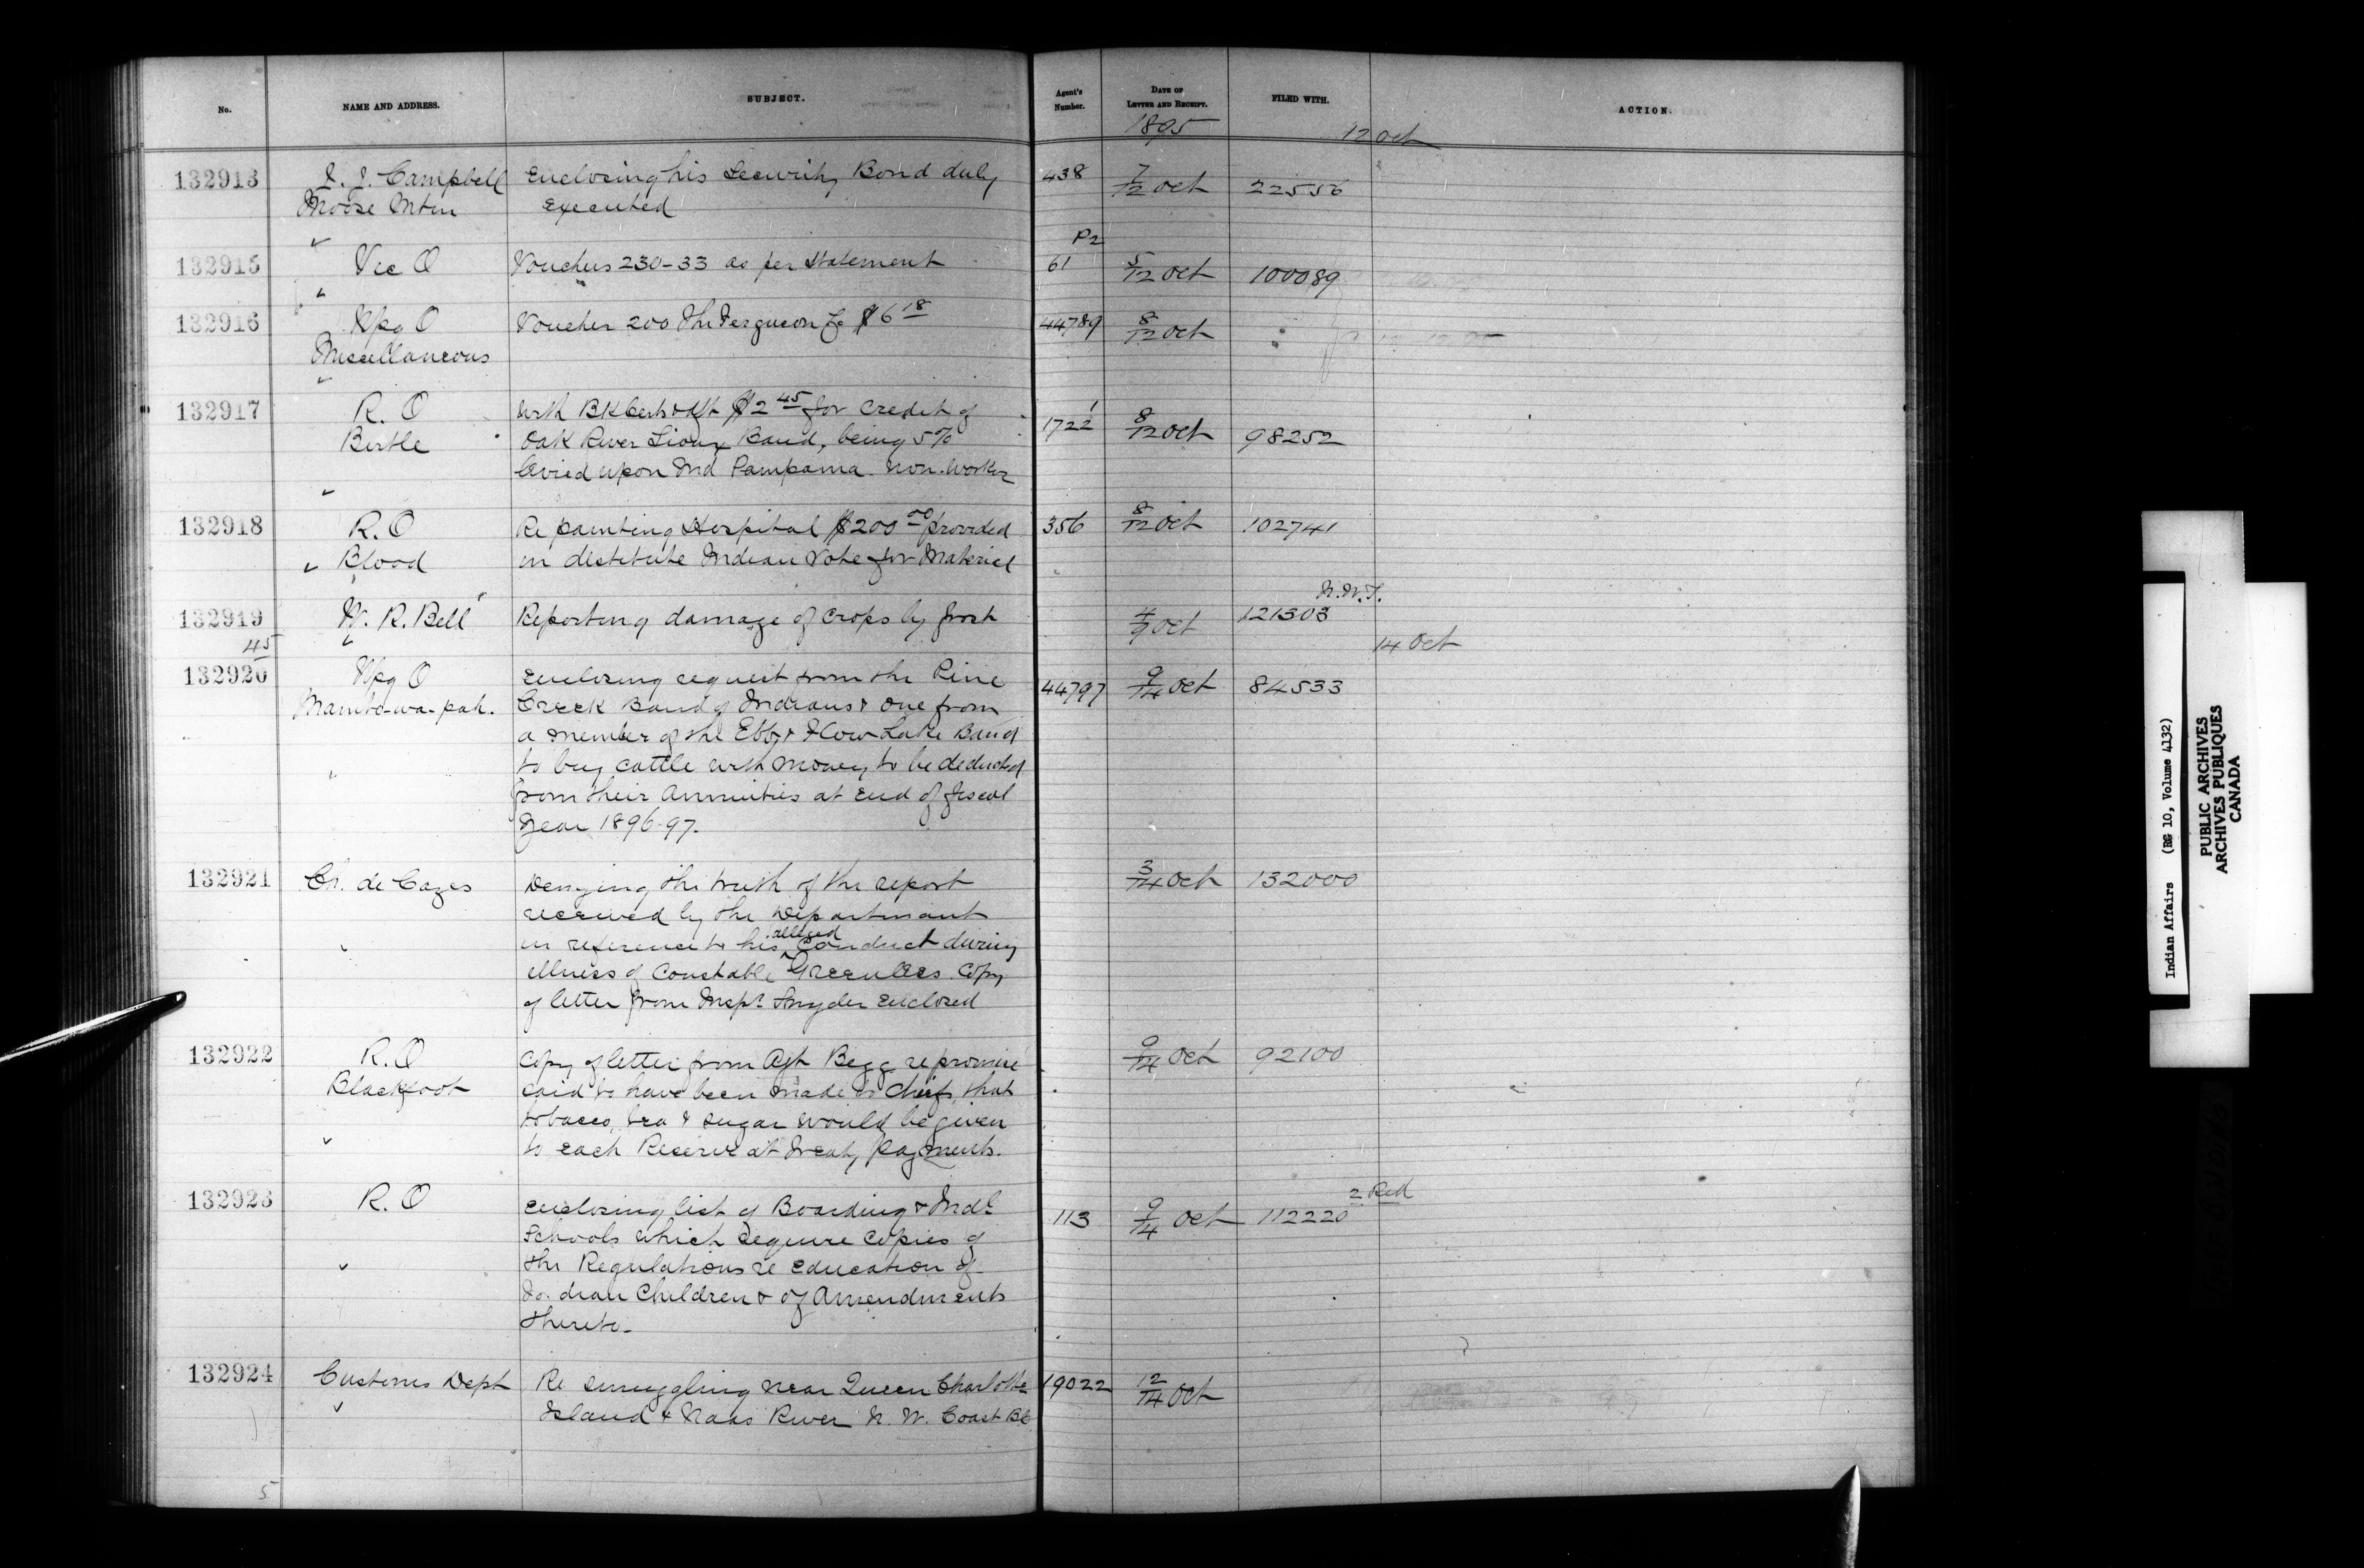 No. NAME AND ADDRESS. SUBJECT. Agent's Number. DATE OF LETTER AND RECEIPT. FILED WITH. ACTION.
1895 12 Oct
132913 J. J. Campbell Enclosing his Security Bond duly 438 7/12 Oct 22556
Moose Mtn executed
P2
132915 Vic O Vouchers 230-33 as per statement 61 5/12 Oct 100089
132916 Wpg O Voucher 200 Thr Ferguson Co $6 18 44789 8/12 Oct "
Miscellaneous
132917 R. O With BK Certs & Dft $2 45 for credit of 1722 1 8/12 Oct 98252
Birtle Oak River Sioux Band, being 5%
levied upon Ind Pampama non-worker
132918 R. O Re painting Hospital $200 00 provided 356 8/12 Oct 102741
Blood in destitute Indian Vote for Material
N.W.T.
132919 W. R. Bell Reporting damage of crops by frost 4/9 Oct 121303
45 14 Oct
132920 Wpg O Enclosing request from the Pine 44797 9/14 Oct 84533
Manito-wa-pah. Creek Band of Indians & one from
a member of the Ebb & Flow Lake Band
to buy cattle with money to be deducted
from their annuities at end of fiscal
Year 1896-97.
132921 Ch. de Cazes Denying the truth of the report 3/14 Oct 132000
received by the Department
in reference to his alleged conduct during
illness of Constable Greenlees. Copy
of letter from Inspr Snyder enclosed
132922 R. O Copy of letter from Agt Begg re promise 9/14 Oct 92100
Blackfoot said to have been made to Chiefs that
tobacco, tea & sugar would be given
to each Reserve at Treaty Payments.
2 Red
132923 R. O Enclosing list of Boarding & Indl 113 9/14 Oct 112220
Schools which require copies of
the Regulations re education of
Indian Children & of Amendments
thereto-
132924 Customs Dept Re smuggling near Queen Charlotte 19022 12/14 Oct
Island & Naas River N. W. Coast B.C.
5
Indian Affairs (RG 10, Volume 4132)
PUBLIC ARCHIVES
ARCHIVES PUBLIQUES
CANADA